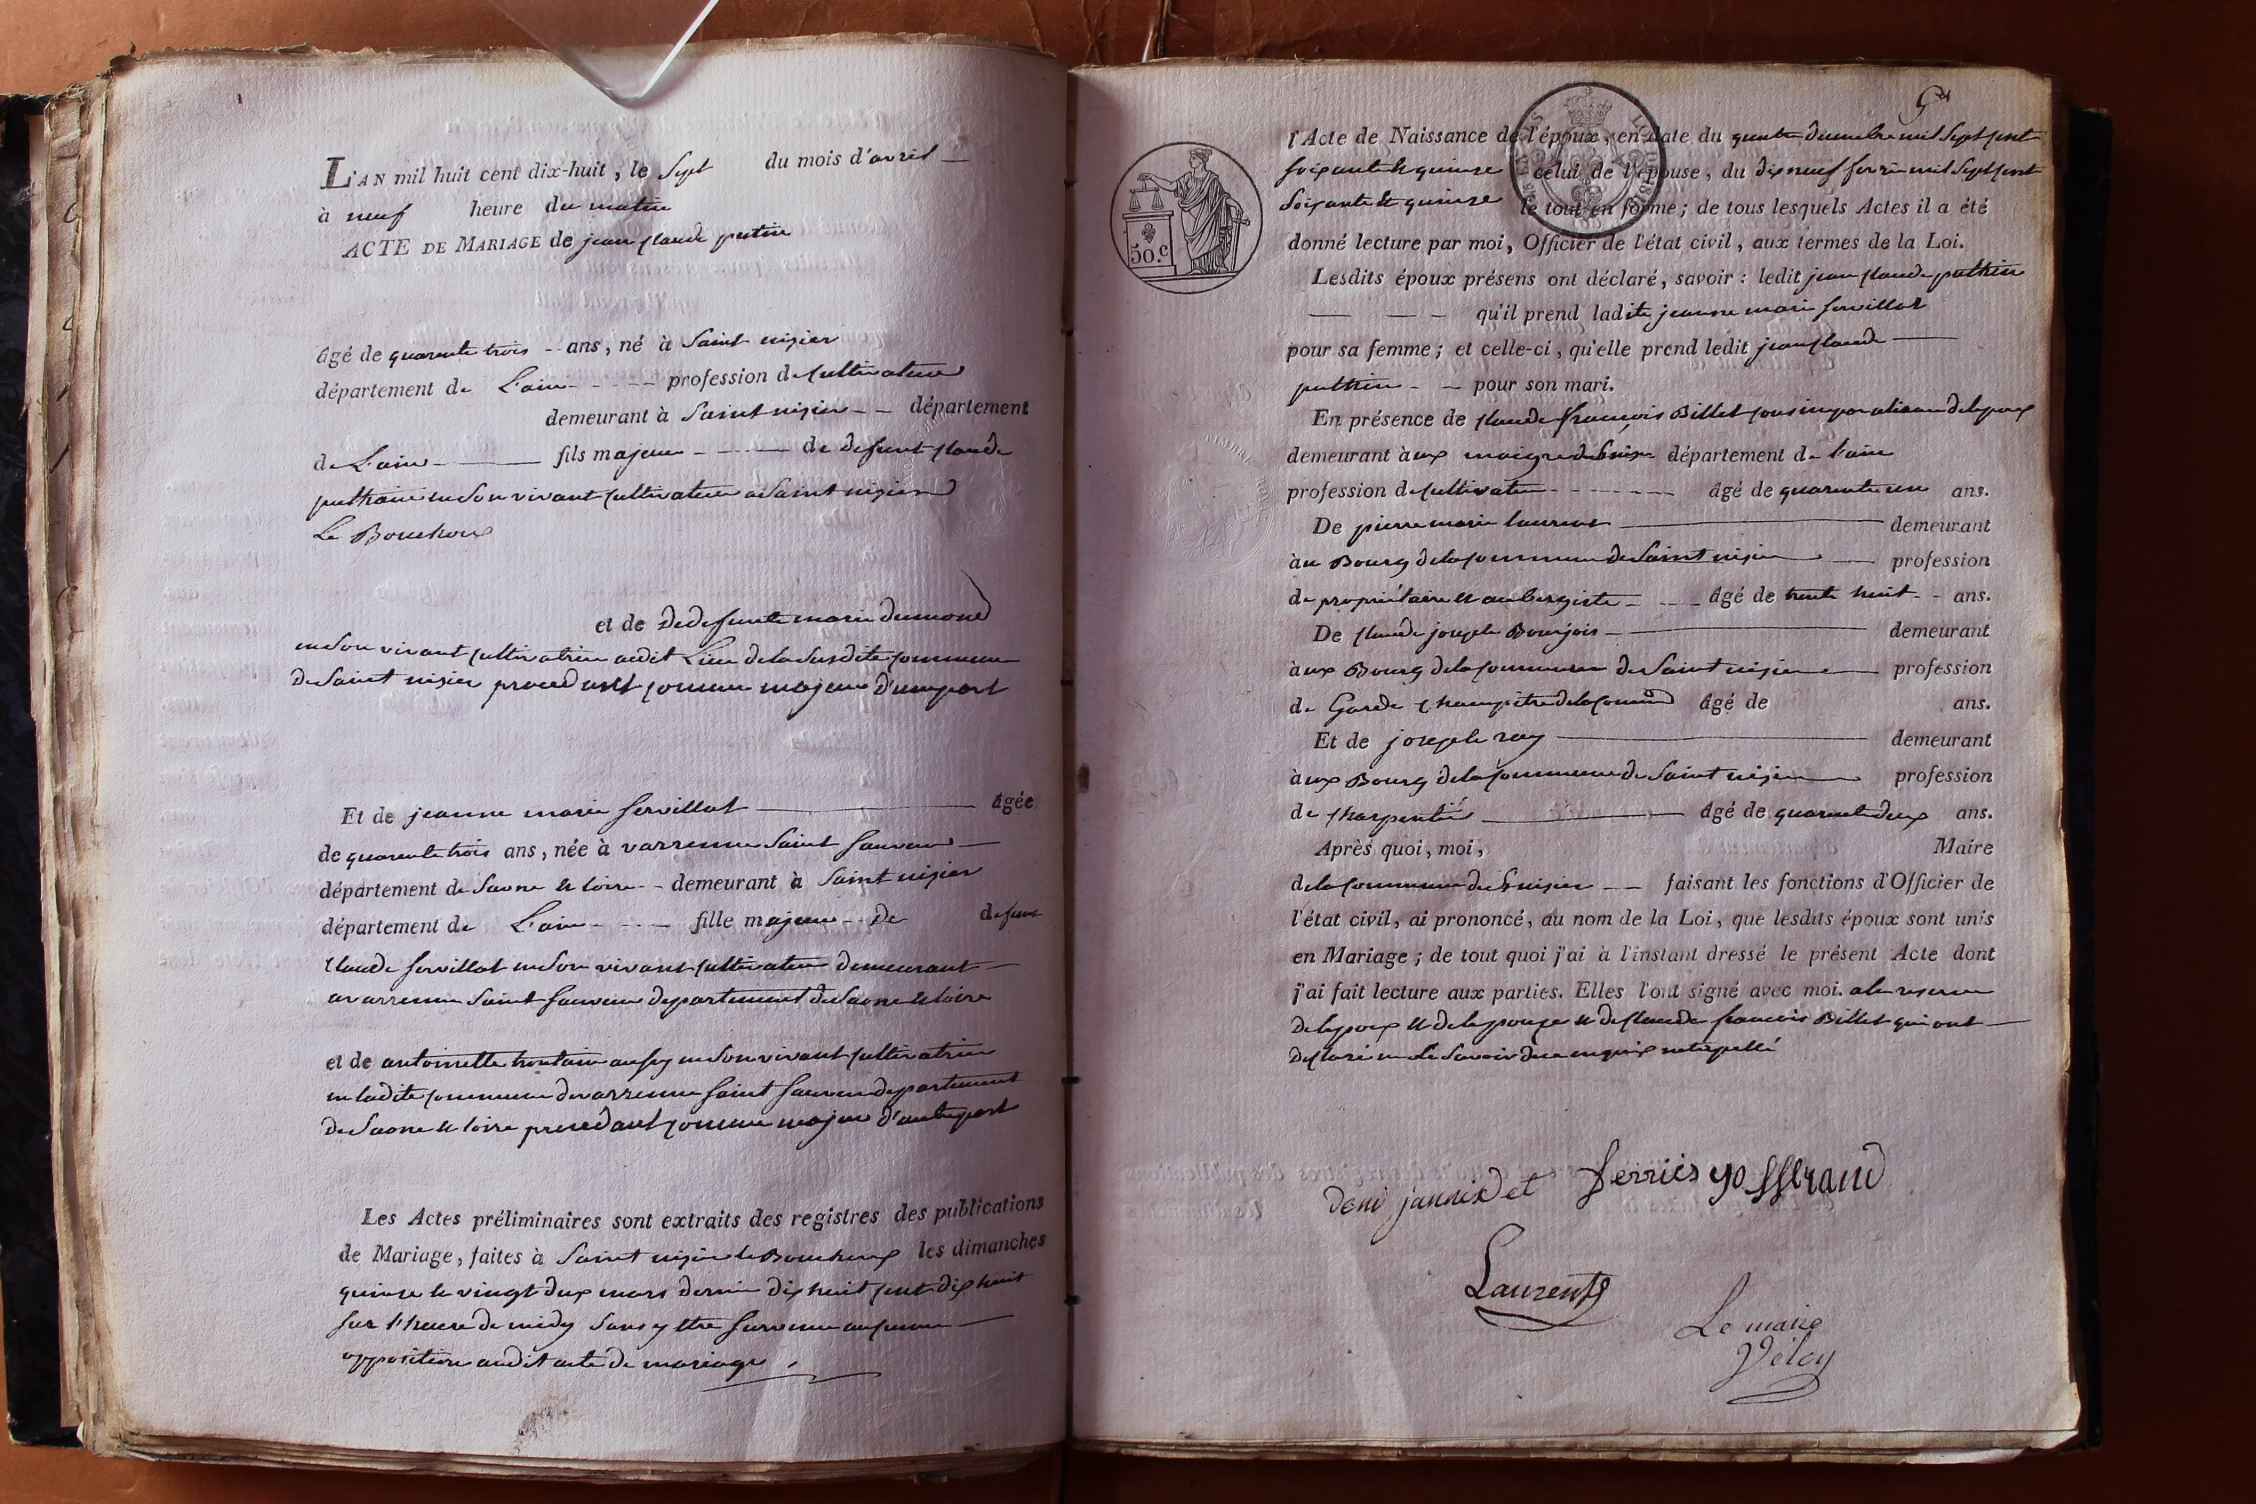 L'AN mil huit cent dix-huit, le Sept du mois d'avril
à neuf heure du matin
ACTE DE MARIAGE de jean claude putin
âgé de quarente trois ans, né à Saint nizier
département de L'ain profession de cultivateur
demeurant à Saint nizier département
de L'ain fils majeur de defunt claude
puthain en son vivant cultivateur a Saint nizier
Le Bouchoux
et de De defunte marie dumond
en son vivant cultivatrice audit Lieu de la Susdite commune
de Saint nizier procedant comme majeur d'unepart
Et de jeanne marie servillat âgée
de quarente trois ans, née à varrenne Saint Sauveur
département de Saone et loire demeurant à Saint nizier
département de L'ain fille majeure de defunt
claude servillat en son vivant cultivateur demeurant
a varrenne Saint Sauveur departement de Saone et loire
et de antoinette aussy en son vivant cultivatrice
en ladite commune de varrenne Saint Sauveur departement
de Saone et loire procedant comme majeur d'autrepart
Les Actes préliminaires sont extraits des registres des publications
de Mariage, faites à Saint nizier le Bouchoux les dimanches
quinze le vingt deux mars dernier dix huit cent dix huit
sur l'heure de midy Sans y etre survenue aucune
opposition audit acte de mariage
l'Acte de Naissance de l'époux, en date du decembre mil Sept cent
soixante et quinze celui de l'épouse, du dix neuf mil Sept cent
Soixante et quinze le tout en forme; de tous lesquels Actes il a été
donné lecture par moi, Officier de l'état civil, aux termes de la Loi.
50.c
Lesdits époux présens ont déclaré, savoir : ledit jean claude puthin
qu'il prend ladite jeanne marie servillat
pour sa femme; et celle-ci, qu'elle prend ledit jean claude
puthin pour son mari.
En présence de claude françois Billet de lepoux
demeurant àux département de l'ain
profession de cultivateur âgé de quarente un ans.
De pierre marie laurent demeurant
àu Bourg de la commune de Saint nizier profession
de propriétaire et aubergiste âgé de trente huit ans.
De claude joseph Bourjois demeurant
àux Bourg de la commune de Saint nizier profession
de Garde champêtre de la âgé de ans.
Et de joseph ray demeurant
àux Bourg de la commune de Saint nizier profession
de charpentié âgé de quarente deux ans.
Après quoi, moi, Maire
de la commune de faisant les fonctions d'Officier de
l'état civil, ai prononcé, au nom de la Loi, que lesdits époux sont unis
en Mariage; de tout quoi j'ai à l'instant dressé le présent Acte dont
j'ai fait lecture aux parties. Elles l'ont signé avec moi. a la reserve
de lepoux et de lepouze et de claude francois Billet qui ont
declaré ne le Savoir de ce enquis
Laurent
Le maire
Vélay